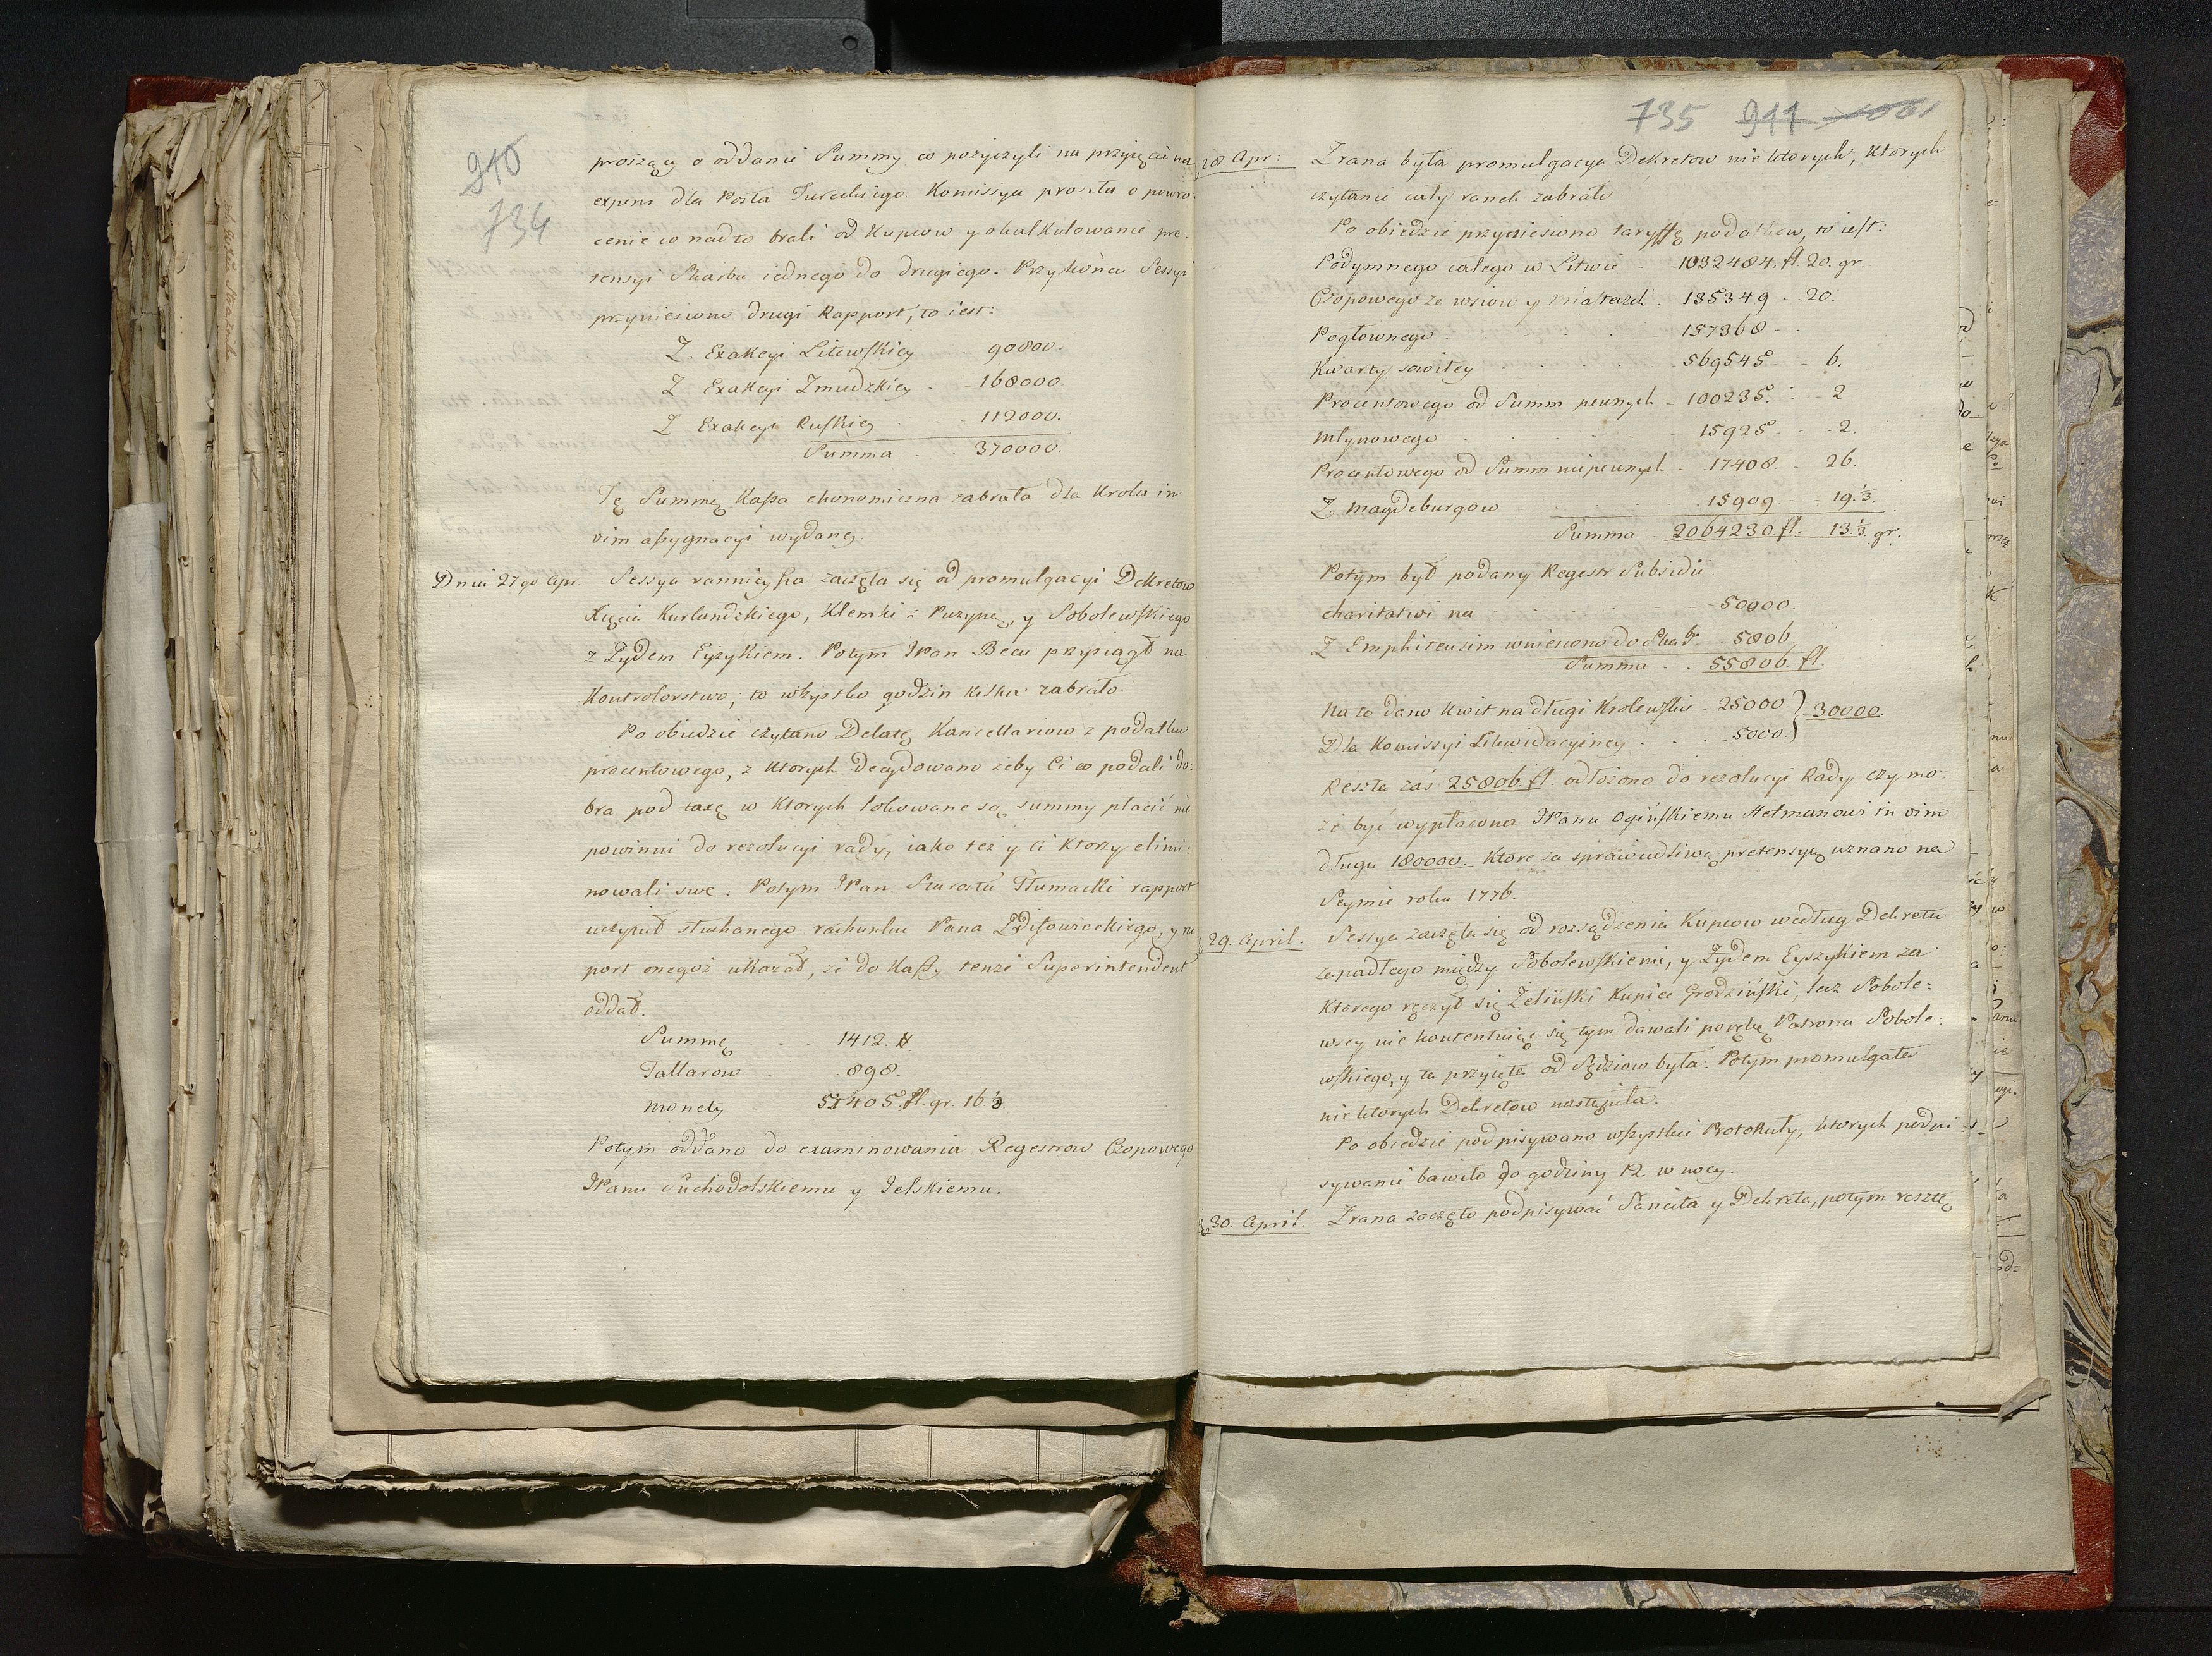 910
734
proszący o oddanie Summy co pożyczyli na przyięcie na
expens dla Posła Tureckiego. Komissya prosiła o powro-
cenie co nadto brali od Kupcow y obalkulowanie pre-
tensyi Skarbu iednego do drugiego. Przy końcu Sessyi
przyniesiono drugi Rapport, to iest:
Z Exakcyi Litewskiey 90800.
Z Exakcyi Zmudzkiey 168000
Z Exakcyi Ruskiey 112000.
Summa 370000.
Tę Summę Kassa ekonomiczna zabrała dla Krola in
vim assygnacyi wydaney.
Dnia 27go Apr. Sessya zaczęła się od promulgacyi Dekretow
Xięcia Kurlandzkiego, Klemki z Puzyną, y Sobolewskiego
z Żydem Eyzykiem. Potym JPan Becu przysiągł na
Kontrolorstwo, to wszystko godzin kilka zabrało.
Po obiedzie czytano Delatę Kancellariow z podatku
procentowego, z ktorych decydowano żeby Ci co podali do:
bra pod taxę w ktorych lokowane są summy płacić nie
powinni do rezolucyi rady, iako też y Ci ktorzy elimi:
nowali swe. Potym JPan Starosta Tłumacki rapport
uczynił słuchanego rachunku Pana, y ra
port onegoż ukazał, że do Kassy tenże Superintendent
oddał.
Summę 1412. #
Tallarow 898.
Monety 51405. fl. gr. 16 1/3
Potym oddano do examinowania Regestrow Czopowego
JPanu Suchodolskiemu y Jelskiemu.
735 911
28. Apr: Zrana była promulgacya Dekretow nie ktorych, ktorych
czytanie cały ranek zabrało
Po obiedzie przyniesiono taryffę podatkow, to iest:
Podymnego całego w Litwie 1032484. fl 20. gr.
Czopowego ze wsiow y miasteczek 135349. 20.
Pogłownego 157368
Kwarty sowitey 569545 6.
Procentowego od Summ pewnych 100235. 2
Młynowego 15925 2.
Procentowego od Summ niepewnych 17408 26.
Z Magdeburgow 15909. 19. 1/3.
Summa 2064230 fl. 13. 1/3 gr.
Potym był podany Regestr Subsidii
charitativi na 50000.
Z Emphiteusim wniesiono do Skarb. 5806
Summa 55806. fl.
Na to dano kwit na długi Krolewskie 25000. } 30000.
Dla Komissyi Likwidacyiney 5000.
Reszta zaś 25806. fl. odłożono do rezolucyi Rady czy mo
że być wypłacona JPanu Ogińskiemu Hetmanowi in vim
długu 180000. Ktore za sprawiedliwą pretensyą uznano na
Seymie roku 1776.
29. April. Sessya zaczęła się od rozsądzenia Kupcow według Dekretu
zapadłego między Sobolewskiemi, y Żydem Eyszykiem za
ktorego ręczył się Zeliński Kupiec Grodziński, lecz Sobole:
wscy nie kontentuiąc się tym dawali porękę Patrona Sobole:
wskiego, y ta przyięta od Sędziow była. Potym promulgata
nie ktorych Dekretow nastąpiła.
Po obiedzie podpisywano wszystkie Protokuły, ktorych podpi:
sywanie bawiło do godziny 12. w nocy.
30. April. Zrana zaczęto podpisywać Sancita y Dekreta, potym resztę